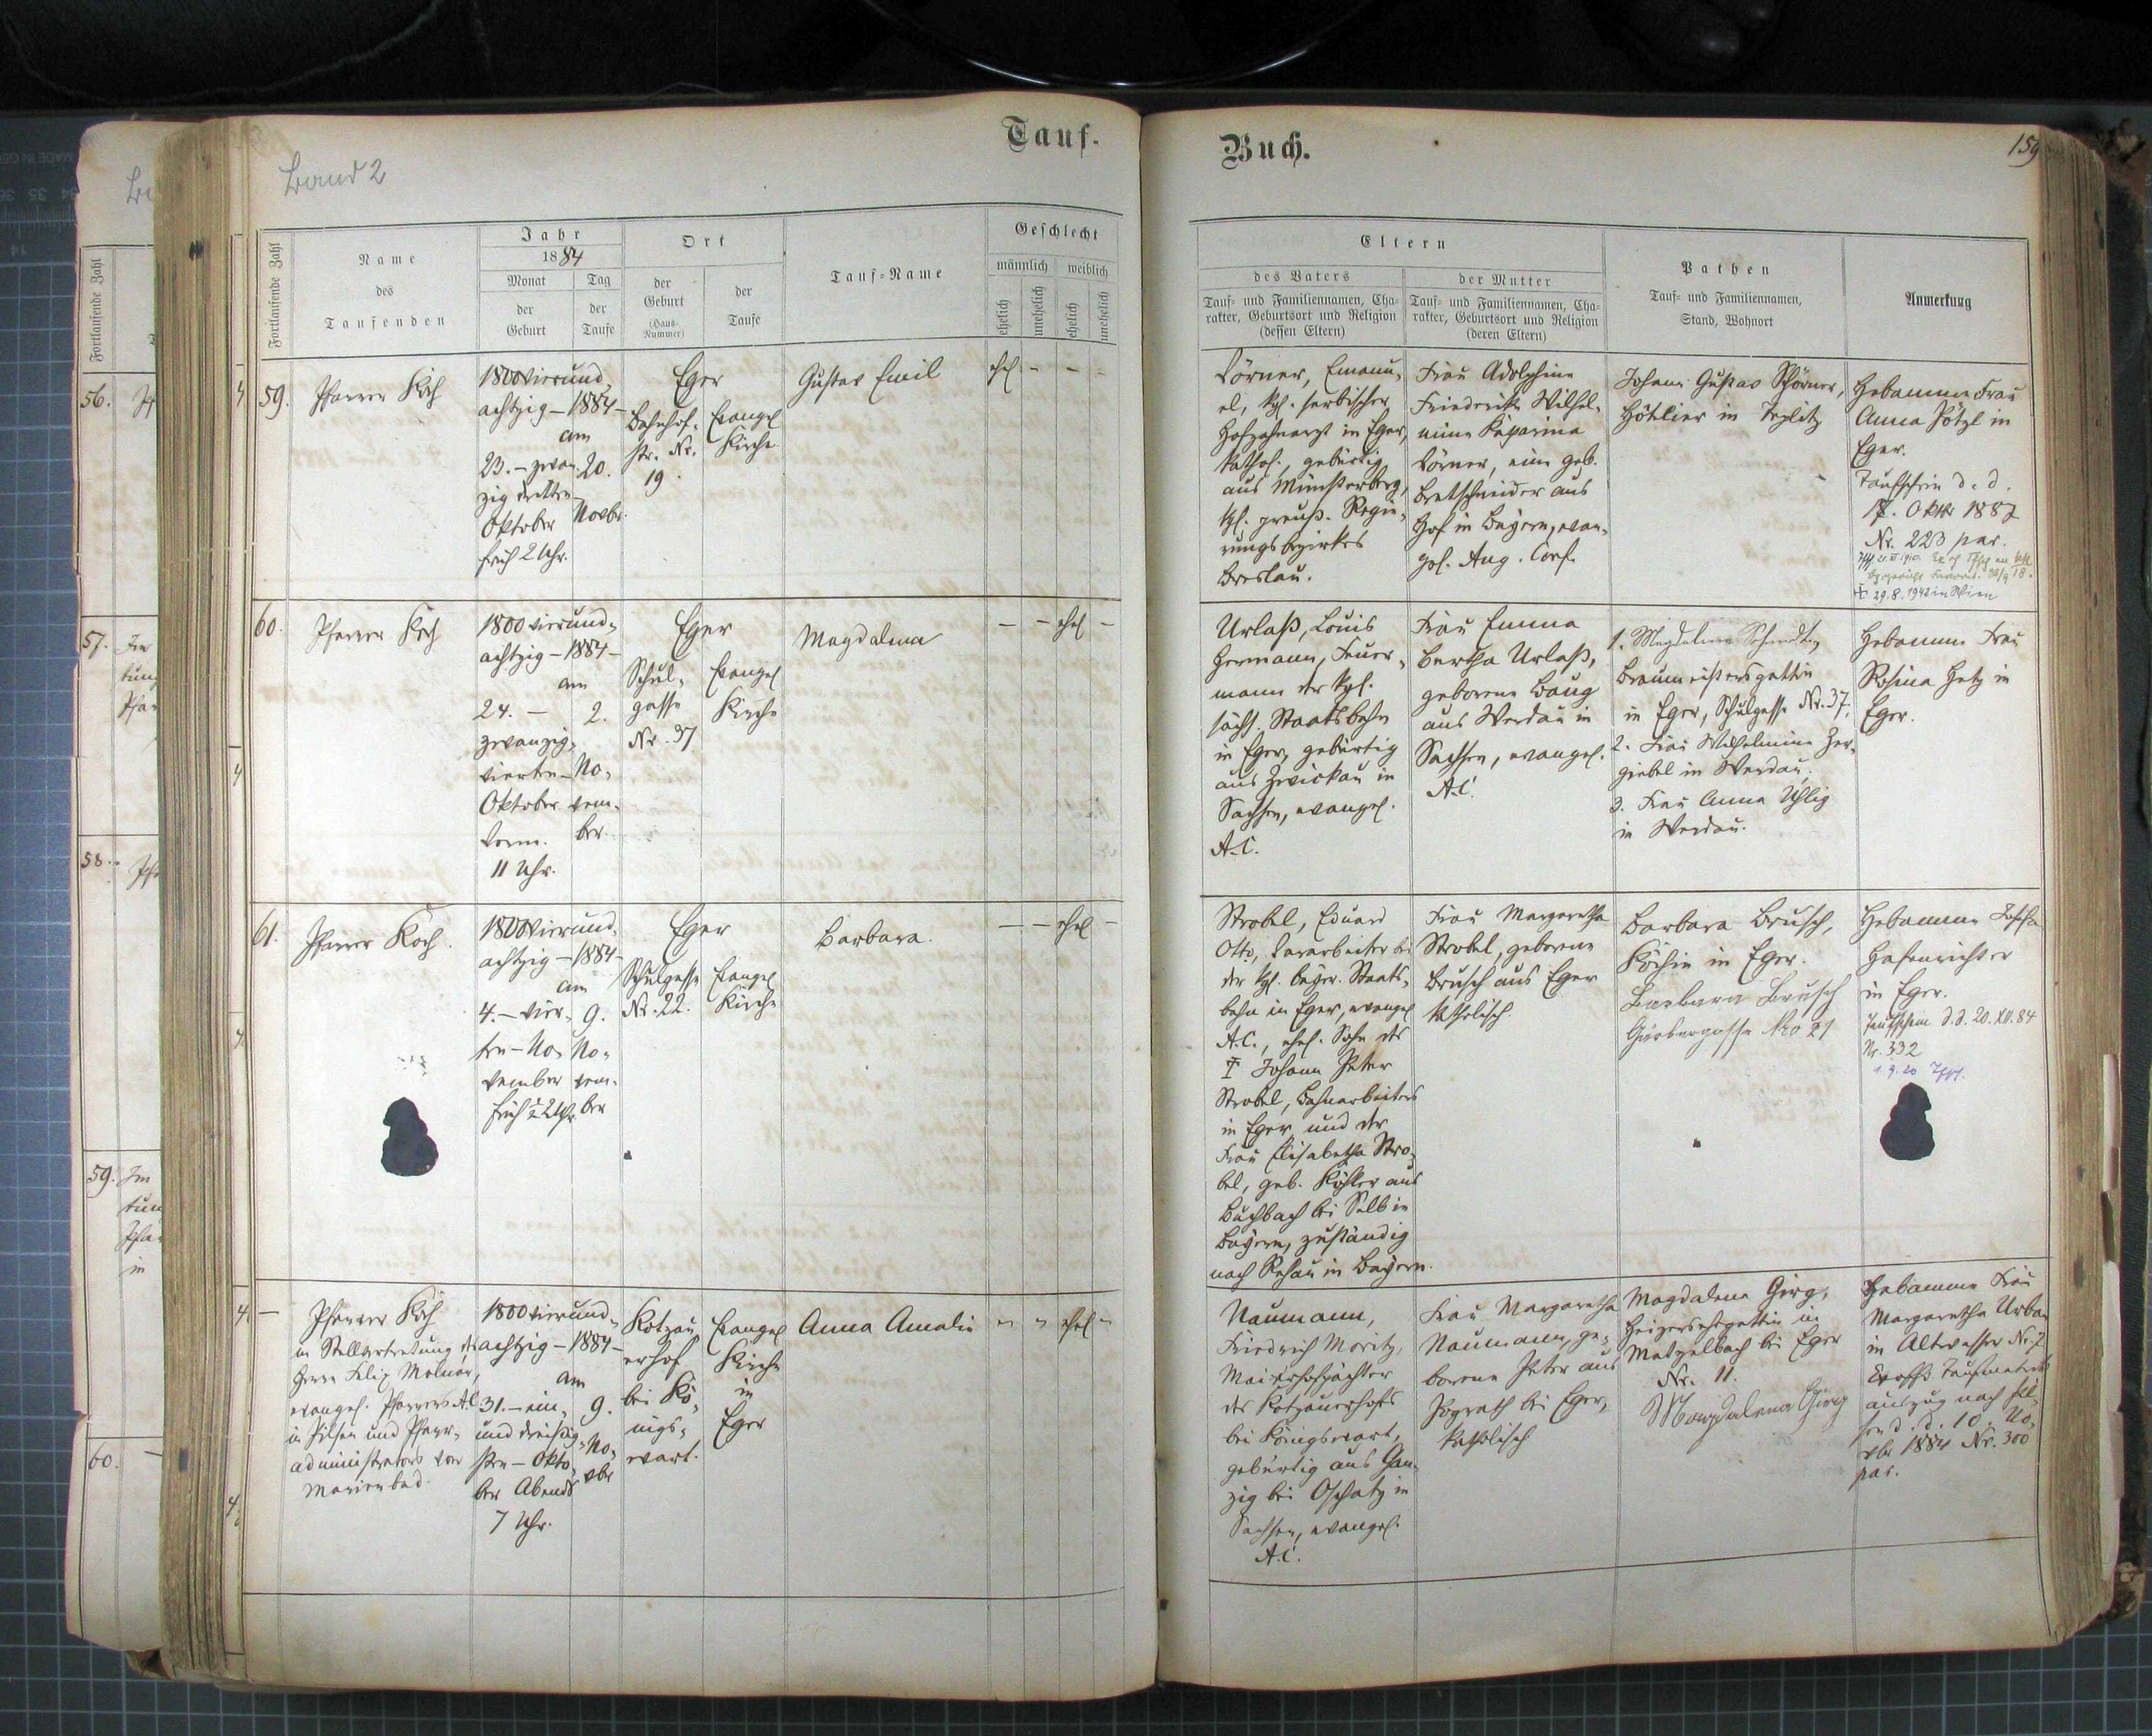 Tauf-
Buch.
159
Band 2
Fortlaufende Zahl
Name
des
Taufenden
Jahr
1884
Monat
der
Geburt
Tag
der
Taufe
Ort
der
Geburt
(Haus-
Nummer)
der
Taufe
Tauf-Name
Geschlecht
männlich
weiblich
ehelich
unehelich
ehelich
unehelich
Eltern
des Vaters
Tauf- und Familiennamen, Cha-
rakter, Geburtsort und Religion
(dessen Eltern)
der Mutter
Tauf- und Familiennamen, Cha-
rakter, Geburtsort und Religion
(deren Eltern)
Pathen
Tauf- und Familiennamen,
Stand, Wohnort
Anmerkung
59.
Pfarrer Koch
1800 vierund-
achtzig - 1884 -
am
23. - zwan-
zig dritten -
Oktober
früh 2 Uhr.
20.
Novbr.
Eger
Bahnhof-
str. Nr.
19.
Evangel
Kirche
Gustav Emil
ehel - - -
Dörner, Emanu-
el, kgl. serbischer
Hofzahnarzt in Eger,
kathol., gebürtig
aus Münsterberg,
kgl. preuß. Regie-
rungsbezirkes
Breslau.
Frau Adolphine
Friederike Wilhel-
mine
Dörner, eine geb.
Bretschneider aus
Hof in Bayern, evan-
gel. Aug. Conf.
Johann Gustav Schörner,
Hôtelier in Teplitz
Hebamme Frau
Anna Pötzl in
Eger.
Taufschein d. d.
17. Oktbr 1887
Nr. 223 par.
29.8.1942 in Wien
60.
Pfarrer Koch
1800 vierund-
achtzig - 1884 -
am
24. -
zwanzig-
vierten -
Oktober
Vorm.
11 Uhr.
2.
No-
vem-
ber.
Eger
Schul-
gasse
Nr. 37
Evangel
Kirche
Magdalena
- - ehel -
Urlaß, Louis
Hermann, Feuer-
mann der kgl.
sächs. Staatsbahn
in Eger, gebürtig
aus Zwickau in
Sachsen, evangel.
A.C.
Frau Emma
Bertha Urlaß,
geborene Baug
aus Werdau in
Sachsen, evangel.
A.C.
1. Magdalena
Braumeistersgattin
in Eger, Schulgasse Nr. 37;
2. Frau Wilhelmine Her-
giebel in Werdau,
3. Frau Anna Uhlig
in Werdau.
Hebamme Frau
Rosina Hetz in
Eger.
61.
Pfarrer Koch.
1800 vierund-
achtzig - 1884 -
am
4. - vier-
ten - No-
vember
früh ½ 2 Uhr.
9.
No-
vem-
ber
Eger
Schulgasse
Nr. 22.
Evangel
Kirche
Barbara.
- - ehel -
Strobel, Eduard
Otto, bei
der kgl. bayer. Staats-
bahn in Eger, evangel
A.C., ehel. Sohn des
† Johann Peter
Strobel, Bahnarbeiters
in Eger und der
Frau Elisabetha Stro-
bel, geb. Köhler aus
Buchbach bei Selb in
Bayern, zuständig
nach Rehau in Bayern.
Frau Margaretha
Strobel, geborene
Brusch aus Eger
katholisch.
Barbara Brusch,
Köchin in Eger.
Barbara Brusch
Gärbergasse Nro 21
Hebamme
Hafenrichter
in Eger.
Taufschein d. d. 20. XII. 84
Nr. 332
1.9.20
-
Pfarrer Koch
in Stellvertretung des
Herrn Felix Molnár,
evangel. Pfarrers A.C.
in Pilsen und Pfarr-
administrators von
Marienbad.
1800 vierund-
achtzig - 1884 -
am
31. - ein-
und dreißig-
sten - Okto-
ber Abends
7 Uhr.
9.
No-
vbr
Kotzau-
erhof
bei Kö-
nigs-
wart.
Evangel
Kirche
in
Eger
Anna Amalie
- - ehel -
Naumann,
Friedrich Moritz,
Maierhofpächter
des Kotzauerhofes
bei Königswart,
gebürtig aus Gan-
zig bei Oschatz in
Sachsen, evangel.
A.C.
Frau Margaretha
Naumann, ge-
borene Peter aus
Pograth bei Eger,
katholisch
Magdalena Girg,
Heizersgattin in
Matzelbach bei Eger
Nr. 11.
Magdalena Girg
Hebamme Frau
Margaretha Urban
in Altwasser Nr. 7
auszug nach Pil-
sen d. d. 10. No-
vbr 1884 Nr. 300
par.
56.
57.
58.
59.
60.